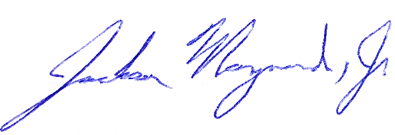 Jackson Maynard, Jr